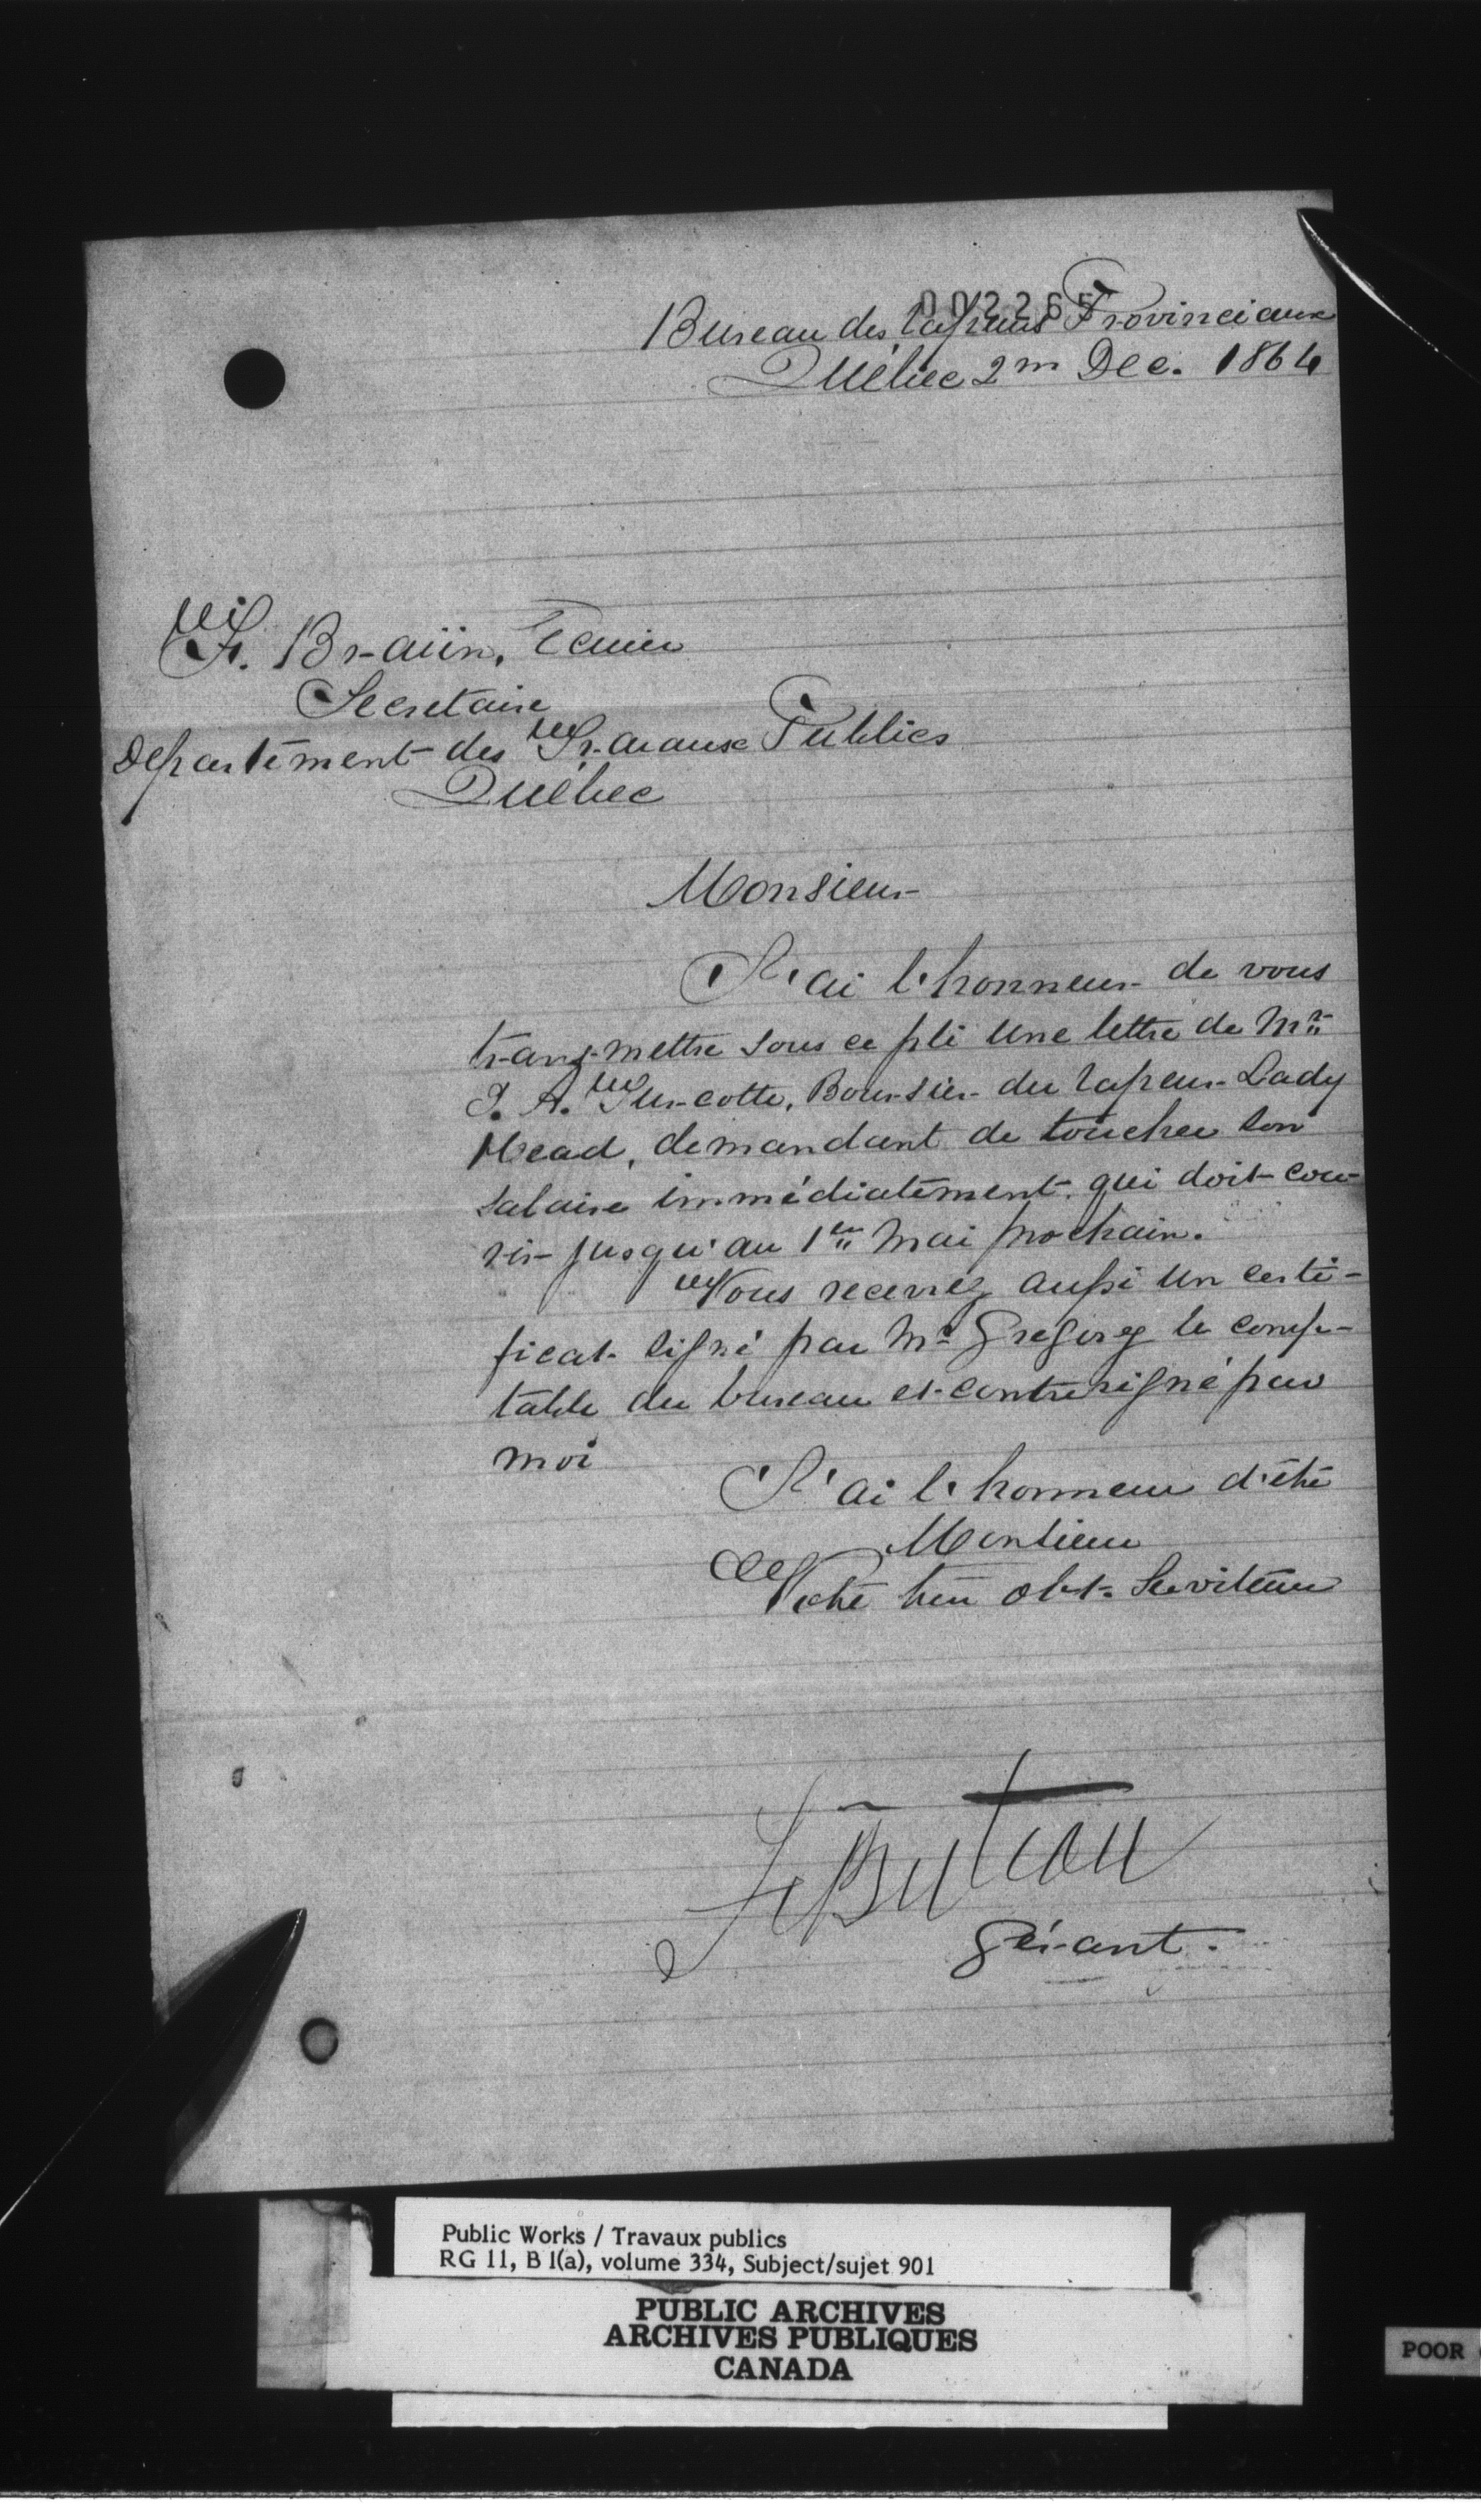 002265
Bureau des Vapeurs Provinciaux
Québec 2m Dec. 1864
F. Braün, Ecuier
Secretaire
Départément des Travaux Publics
Québec
Monsieur
J'ai l'honneur de vous
transmettre sous ce pli une lettre de Mr
J. A. Turcotte, Boursier du Vapeur Lady
Head, demandant de toucher son
salaire immédiatement, qui doit cou-
rir jusqu'au 1er Mai prochain.
Vous recevrez aussi un certi-
ficat signé par Mr Gregory le comp-
table du bureau et contresigné par
moi
J'ai l'honneur d'être
Monsieur
Votre très obt. Serviteur
Buteau
Gérant.
Public Works / Travaux publics
RG 11, B 1(a), volume 334, Subject/sujet 901
PUBLIC ARCHIVES
ARCHIVES PUBLIQUES
CANADA
POOR